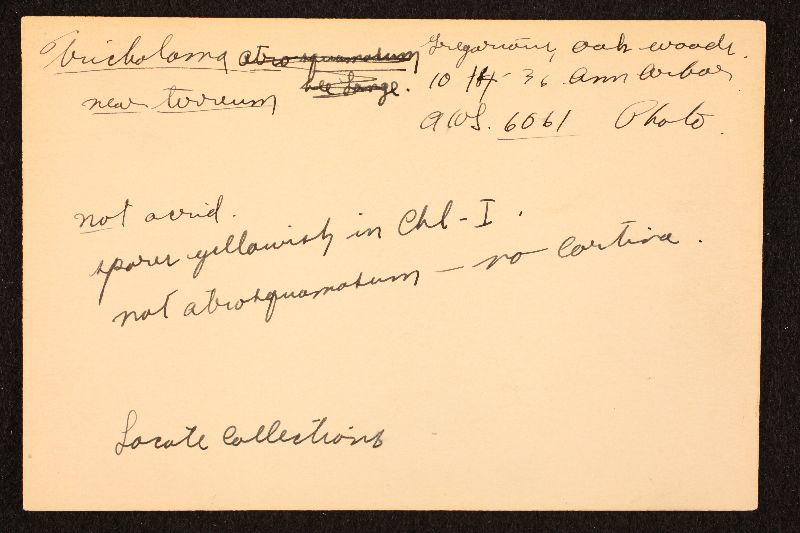 Tricholoma atrosquamosum
see Lange.
near terreum
Gregarious, oak woods.
10 14 36 Ann Arbor
AHS. 6061 Photo.
not acrid.
spores yellowish in Chl-I.
not atrosquamosum — no cortina.
Locate Collections